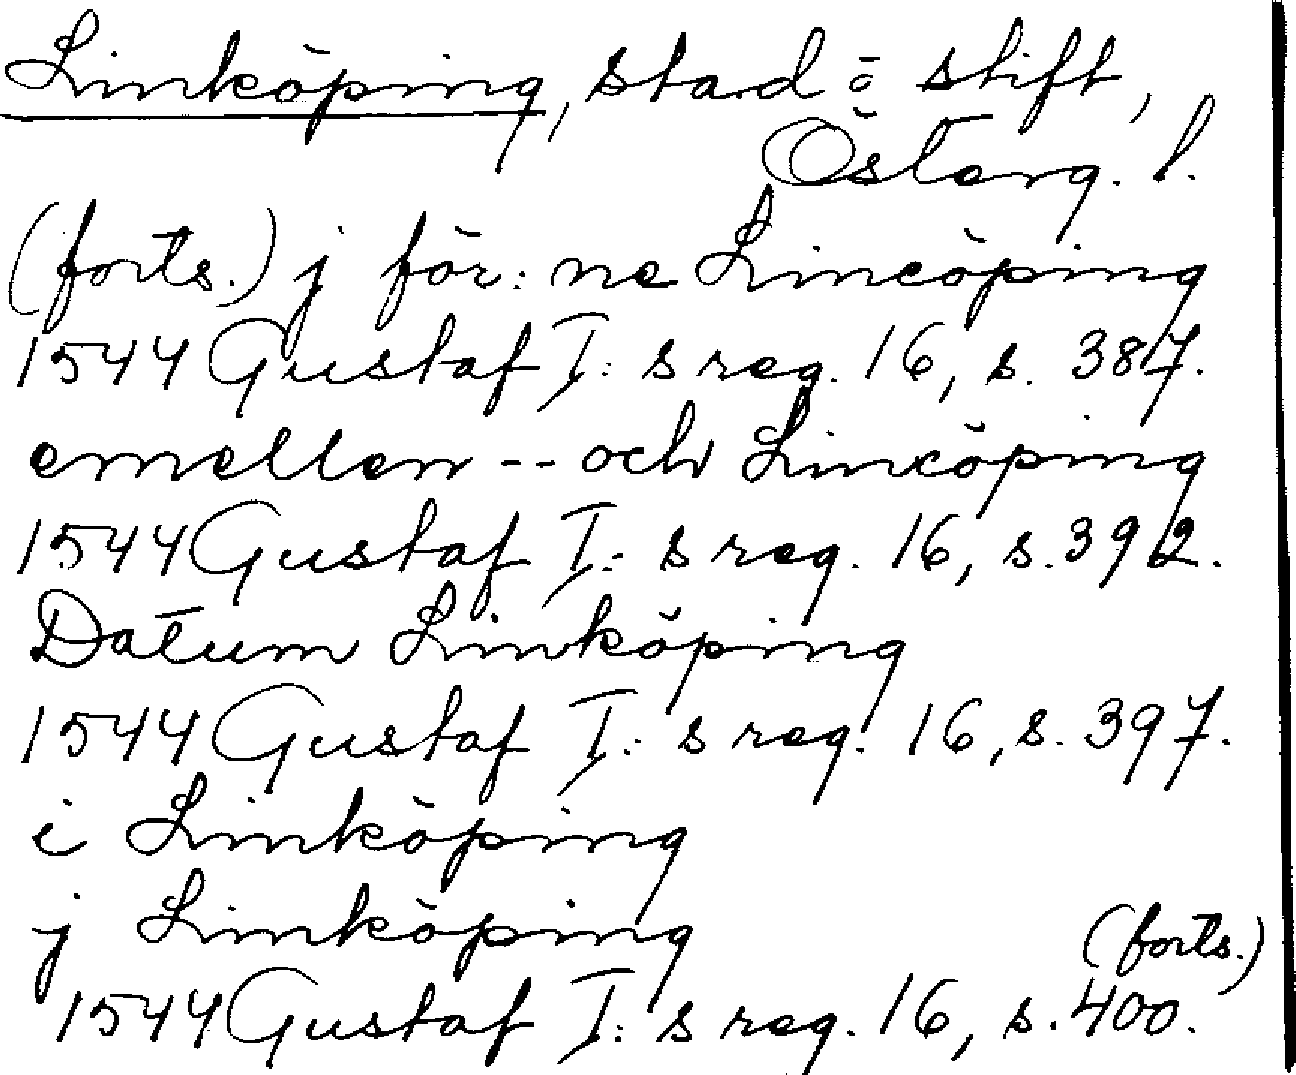 Linköping, stad o stift,
Österg. l.
(forts.) j för: ne Lincöping
1544 Gustaf I: s reg. 16, s. 387.
emellen -- och Lincöping
1544 Gustaf I: s reg. 16, s. 392.
Datum Linköping
1544 Gustaf I: s reg. 16, s. 397.
i Linköping
j Linköping
(forts.)
1544 Gustaf I: s reg. 16, s. 400.